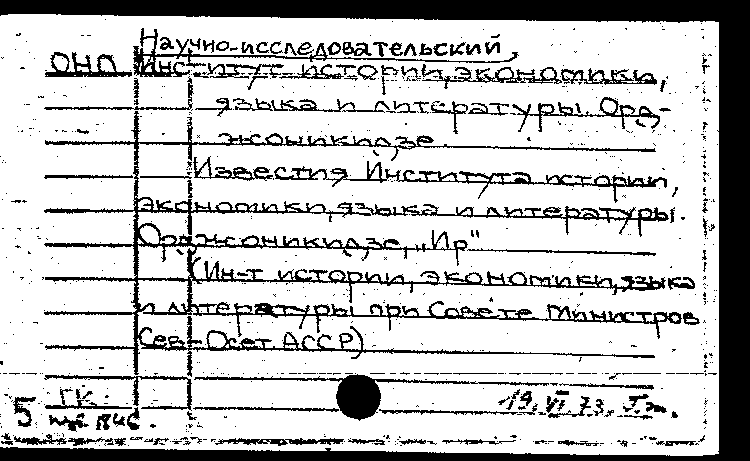 Научно-исследовательский
ОНП институт истории, экономики,
языка и литературы. Орд-
жоникидзе.
Известия Института истории,
экономики, языка и литературы.
Орджоникидзе, „Ир"
(Ин-т истории, экономики, языка
и литературы при Совете Министров
Сев-Осет АССР)
ГК
5
19. VI 73.